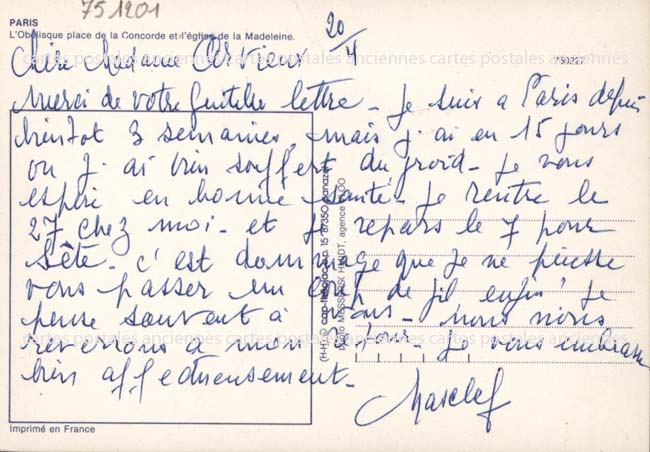 75 1201
PARIS
L'Obélisque place de la Concorde et l'église de la Madeleine.
20/4
cartes postales anciennes cartes postales anciennes cartes postales anciennes
750227
Chère Madame Arvieux
Merci de votre Gentille lettre - Je suis a Paris depuis
bientot 3 semaines, mais j ai eu 15 jours
ou j. ai bien souffert du froid - Je vous
espère en bonne santé - Je rentre le
27 chez moi - et je repars le 7 pour
Sète - C'est dommage que je ne puisse
vous passer un coup de fil enfin Je
pense souvent à vous - nous nous
reverrons à mon retour - Je vous embrasse
bien affectueusement -
Masclef
cartes postales anciennes cartes postales anciennes cartes postales anciennes
Imprimé en France